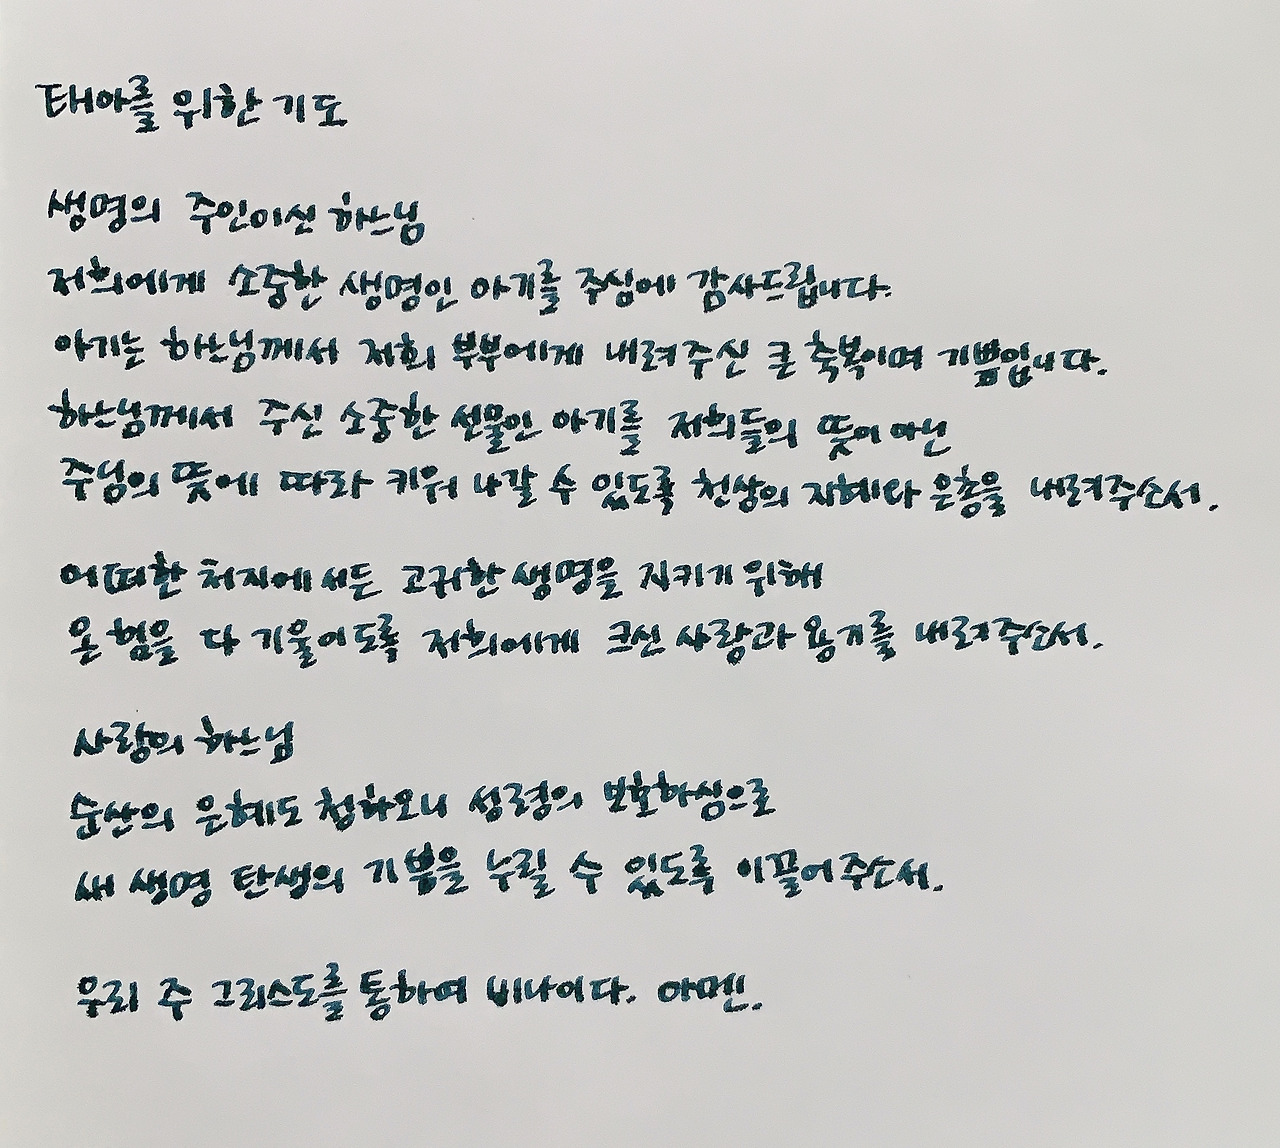 태아를 위한 기도
생명의 주인이신 하느님
저희에게 소중한 생명인 아기를 주심에 감사드립니다.
아기는 하느님께서 저희 부부에게 내려주신 큰 축복이며 기쁨입니다.
하느님께서 주신 소중한 선물인 아기를 저희들의 뜻이 아닌
주님의 뜻에 따라 키워 나갈 수 있도록 천상의 지혜와 은총을 내려주소서.
어떠한 처지에서든 고귀한 생명을 지키기 위해
온 힘을 다 기울이도록 저희에게 크신 사랑과 용기를 내려주소서.
사랑의 하느님
순산의 은혜도 청하오니 성령의 보호하심으로
새 생명 탄생의 기쁨을 누릴 수 있도록 이끌어주소서.
우리 주 그리스도를 통하여 비나이다. 아멘.